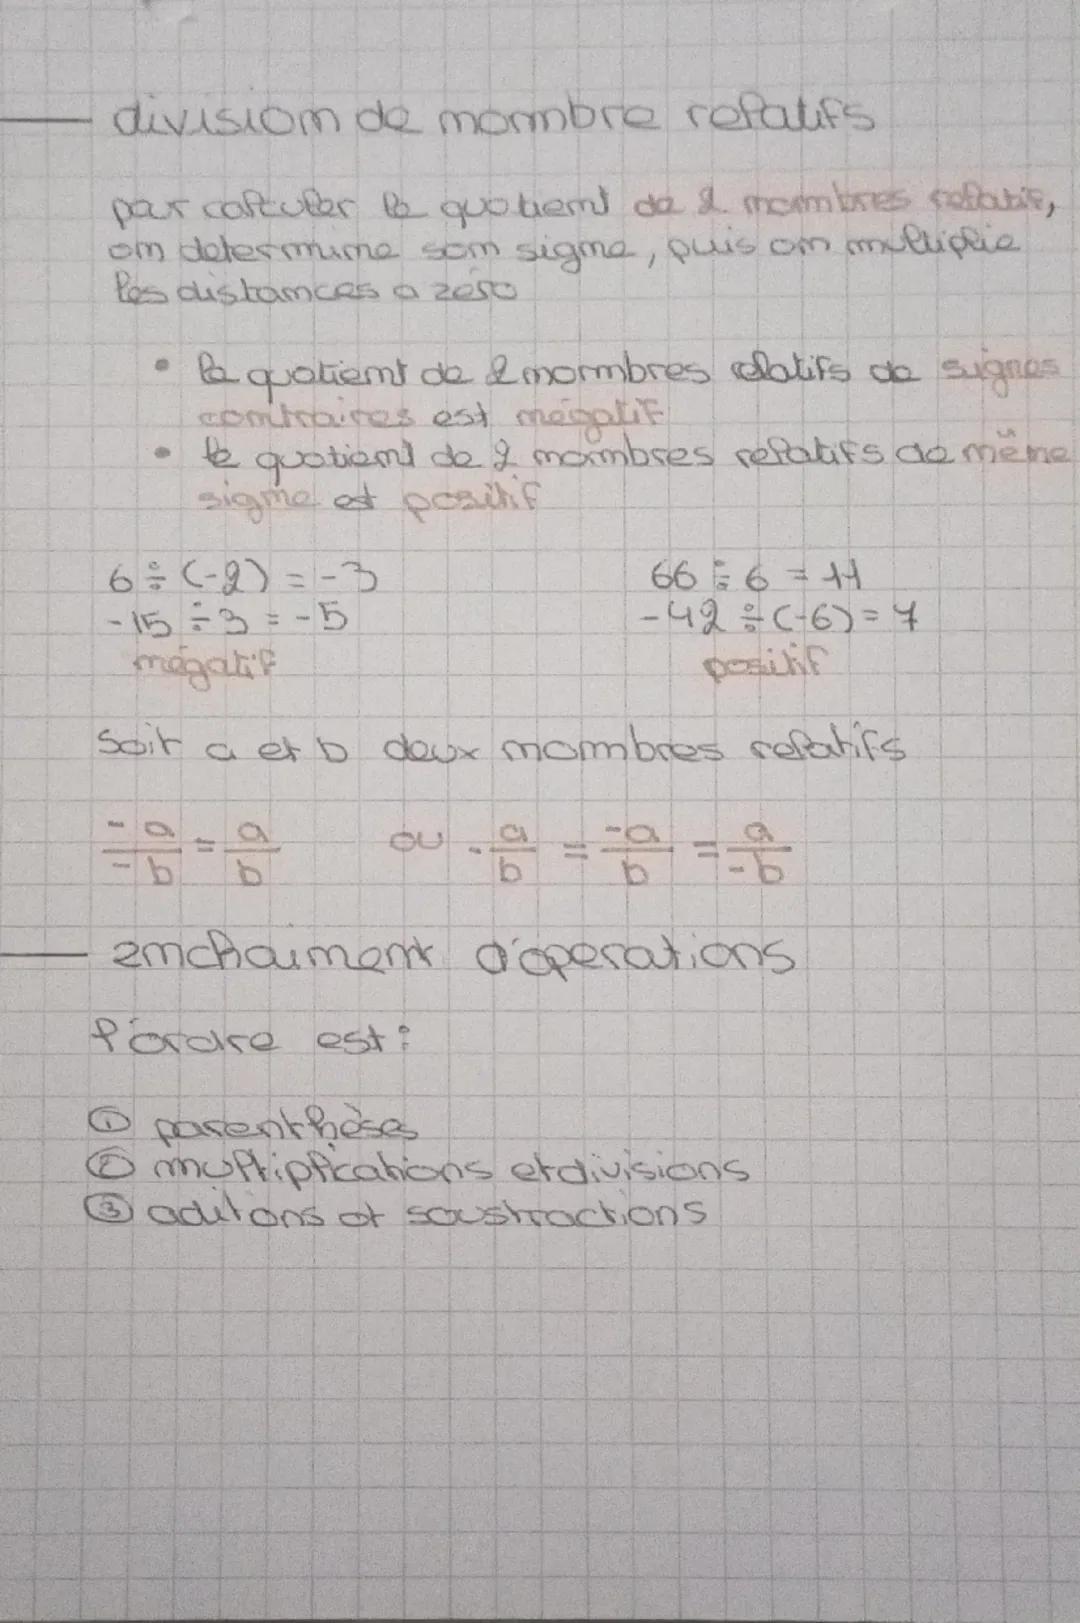 division de nombre relatifs
pour calculer le quotient de 2 nombres relatifs,
on determine son signe, puis on multiplie
les distances a zero
• le quotient de 2 nombres relatifs de signes
contraires est négatif
• le quotient de 2 nombres relatifs de même
signe est positif
6 ÷ (-2) = -3 66 ÷ 6 = 11
-15 ÷ 3 = -5 -42 ÷ (-6) = 7
négatif positif
Soit a et b deux nombres relatifs
-a/-b = a/b ou -a/b = -a/b = a/-b
enchainment d'operations
l'ordre est :
① parenthèses
② multiplications et divisions
③ aditons et soustractions